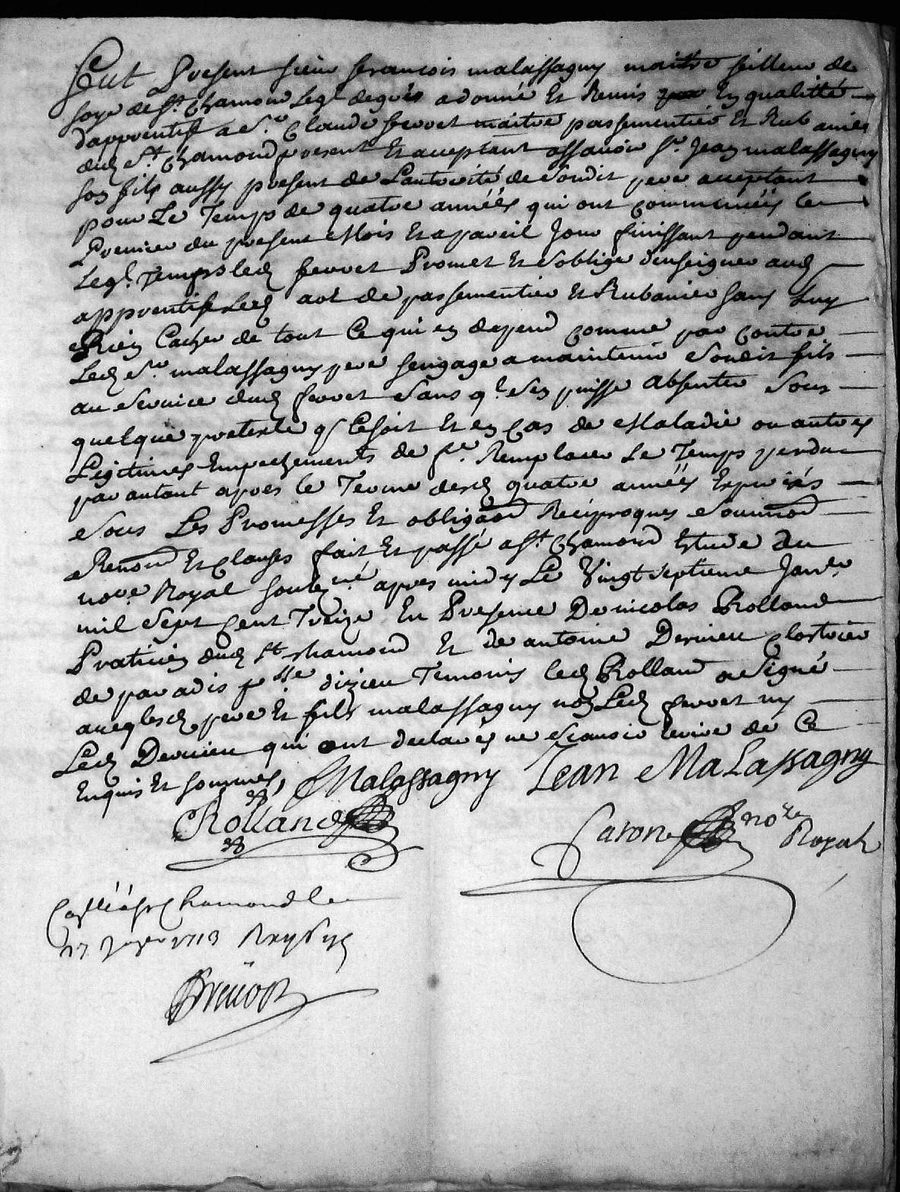 Fut Present sieur francois malassagny maitre filleur de
soye de St. Chamond Leql. degrés a donné Et Remis En qualitté
d'apprentif a Sr. Claude ferret maitre passementier Et Rubanier
dud St. Chamond present Et acceptant assavoir Sr. Jean malassagny
son fils aussy present de Lautorité de sondit pere acceptant
pour Le Temps de quatre années qui ont commencées le
Premier du present Mois Et a pareil Jour finissant pendant
Leql. Temps led ferret Promet Et s'oblige d'enseigner aud
apprentif Led art de passementier Et Rubanier sans Luy
Rien Cacher de tout Ce qui en depend Comme par Contre
Led Sr. malassagny pere s'engage a maintenir Sondit fils
au Service dud ferret Sans ql. s'en puisse absenter Sous
quelque pretexte q Ce soit Et en Cas de Maladie ou autres
Legitimes Empechements de Remplacer Le Temps perdu
par autant apres le Terme desd quatre années Expirés
Sous Les Promesses Et obligaõns Reciproques Soummõns
Renõns Et Clauses fait Et passé a St. Chamond Etude du
nore. Royal soussné. apres midy Le Vingt septieme Janer.
mil Sept Cent Treize En Presence De nicolas Rolland
Praticien dud St. chamond Et de antoine Dervieu
de paradis psse. dizieu Temoins led Rolland a Signé
avec lesd pere Et fils malassagny non Led ferret ny
Led Dervieu qui ont declarés ne scavoir Ecrire de Ce
Enquis Et sommés,
Malassagny Jean Malassagny
Rolland
Caron nore Royal
Conllé a St Chamond le
27 Janver 1713